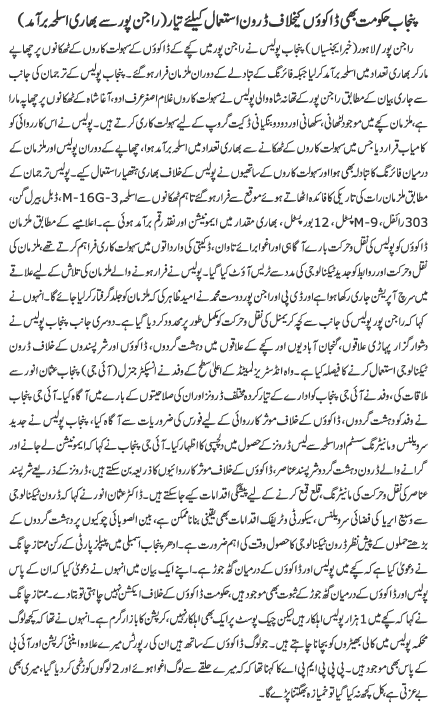 پنجاب حکومت بھی ڈاکوؤں کیخلاف ڈرون استعمال کیلئے تیار (راجن پور سے بھاری اسلحہ برآمد)
راجن پور/لاہور (خبر ایجنسیاں) پنجاب پولیس نے راجن پور میں کچے کے ڈاکوؤں کے سہولت کاروں کے ٹھکانوں پر چھاپے
مار کر بھاری تعداد میں اسلحہ برآمد کرلیا جبکہ فائرنگ کے تبادلے کے دوران ملزمان فرار ہونے میں کامیاب ہوگئے۔ پولیس ترجمان کی جانب
سے جاری بیان کے مطابق راجن پور کے تھانہ شاہ والی پولیس نے سہولت کاروں غلام اصغر عرف ادو، آغا شاہ کے ٹھکانوں پر چھاپہ مارا
ہے، ملزمان کچے میں موجود لٹھانی، سکھانی اور دودو بنگیانی ڈکیت گروپ کے لیے سہولت کاری کرتے ہیں۔ پولیس نے اس کارروائی کو
کامیاب قرار دیا جس میں سہولت کاروں کے ٹھکانے سے بھاری تعداد میں اسلحہ برآمد ہوا، چھاپے کے دوران پولیس اور ملزمان کے
فائرنگ کا تبادلہ بھی ہوا اور سہولت کاروں کے ساتھیوں نے پولیس کے خلاف بھاری ہتھیار استعمال کیے۔ پولیس ترجمان کے
مطابق ملزمان رات کی تاریکی کا فائدہ اٹھاتے ہوئے موقع سے فرار ہوگئے تاہم ٹھکانوں سے اسلحہ، M-16G-3، ڈبل بیرل گن،
303 رائفل، M-9 پسٹل، 12 بور پسٹل، بھاری مقدار میں ایمونیشن اور نقد رقم برآمد ہوئی ہے۔ اعلامیے کے مطابق ملزمان
ڈاکوؤں کو پولیس کی نقل و حرکت بارے آگاہی اور اغوا برائے تاوان، ڈکیتی کی وارداتوں میں سہولت کاری فراہم کرتے تھے، ملزمان کی
نقل و حرکت اور روابط کو جدید ٹیکنالوجی کی مدد سے ٹریس آؤٹ کیا گیا۔ پولیس نے فرار ہونے والے ملزمان کی تلاش کے لیے علاقے
میں سرچ آپریشن جاری رکھا ہوا ہے اور ڈی پی او راجن پور دوست محمد نے امید ظاہر کی کہ ملزمان کو جلد گرفتار کرلیا جائے گا۔ انہوں نے
کہا کہ راجن پور پولیس کی جانب سے کچہ کریمنل کی نقل و حرکت کو مکمل طور پر محدود کردیا گیا ہے۔ دوسری جانب پنجاب پولیس نے
دشوار گزار پہاڑی علاقوں، گنجان آبادیوں اور کچے کے علاقوں میں دہشت گردوں، ڈاکوؤں اور شرپسندوں کے خلاف ڈرون
ٹیکنالوجی استعمال کرنے کا فیصلہ کیا ہے۔ واہ انڈسٹریز لمیٹڈ کے اعلیٰ سطح کے وفد نے انسپکٹر جنرل (آئی جی) پنجاب عثمان انور سے
ملاقات کی، وفد نے آئی جی پنجاب کو ادارے کے تیار کردہ مختلف ڈرونز اور ان کی صلاحیتوں کے بارے میں آگاہ کیا۔ آئی جی پنجاب
نے وفد کو دہشت گردوں، ڈاکوؤں کے خلاف موثر کارروائی کے لیے فورس کی ضروریات سے آگاہ کیا، پنجاب پولیس نے جدید
سرویلنس و مانیٹرنگ سسٹم اور اسلحہ سے لیس ڈرونز کے حصول میں دلچسپی کا اظہار کیا۔ آئی جی پنجاب نے کہا کہ ایمونیشن لے جانے اور
گرانے والے ڈرون دہشت گردوں و شرپسند عناصر، ڈاکوؤں کے خلاف موثر کارروائیوں کا ذریعہ بن سکتے ہیں، ڈرونز کے ذریعے شرپسند
عناصر کی نقل و حرکت کی مانیٹرنگ، قلع قمع کرنے کے لیے پیشگی اقدامات کیے جاسکتے ہیں۔ ڈاکٹر عثمان انور نے کہا کہ ڈرون ٹیکنالوجی
سے وسیع ایریا کی فضائی سرویلنس، سیکورٹی و ٹریفک اقدامات بھی یقینی بنانا ممکن ہے، بین الصوبائی چوکیوں پر دہشت گردوں کے
بڑھتے حملوں کے پیش نظر ڈرون ٹیکنالوجی کا حصول وقت کی اہم ضرورت ہے۔ ادھر پنجاب اسمبلی میں پیپلز پارٹی کے رکن ممتاز چانگ
نے دعویٰ کیا ہے کہ کچے میں پولیس اور ڈاکوؤں کے درمیان گٹھ جوڑ ہے۔ اپنے ایک بیان میں انہوں نے دعویٰ کیا کہ ان کے پاس
پولیس اور ڈاکوؤں کے درمیان گٹھ جوڑ کے ثبوت بھی موجود ہیں، حکومت ڈاکوؤں کے خلاف ایکشن نہیں چاہتی تو بتا دے۔ ممتاز چانگ
نے کہا کہ کچے میں 1 ہزار پولیس اہلکار ہیں لیکن چیک پوسٹ پر ایک بھی اہلکار نہیں، کرپشن کا بازار گرم ہے۔ انہوں نے کہا کہ کچھ لوگ
محکمہ پولیس میں کالی بھیڑوں کو بچانا چاہتے ہیں۔ جو لوگ ڈاکوؤں کے ساتھ ہیں ان کی رپورٹس میرے علاوہ اینٹی کرپشن اور آئی بی
کے پاس بھی موجود ہیں۔ پی پی پی ایم پی اے کا کہنا تھا کہ میرے حلقے سے لوگ اغوا ہوئے اور 2 لوگوں کو زخمی کردیا گیا، میری بھی
بے عزتی ہے، کل کچھ نہ کیا گیا تو خمیازہ بھگتنا پڑے گا۔